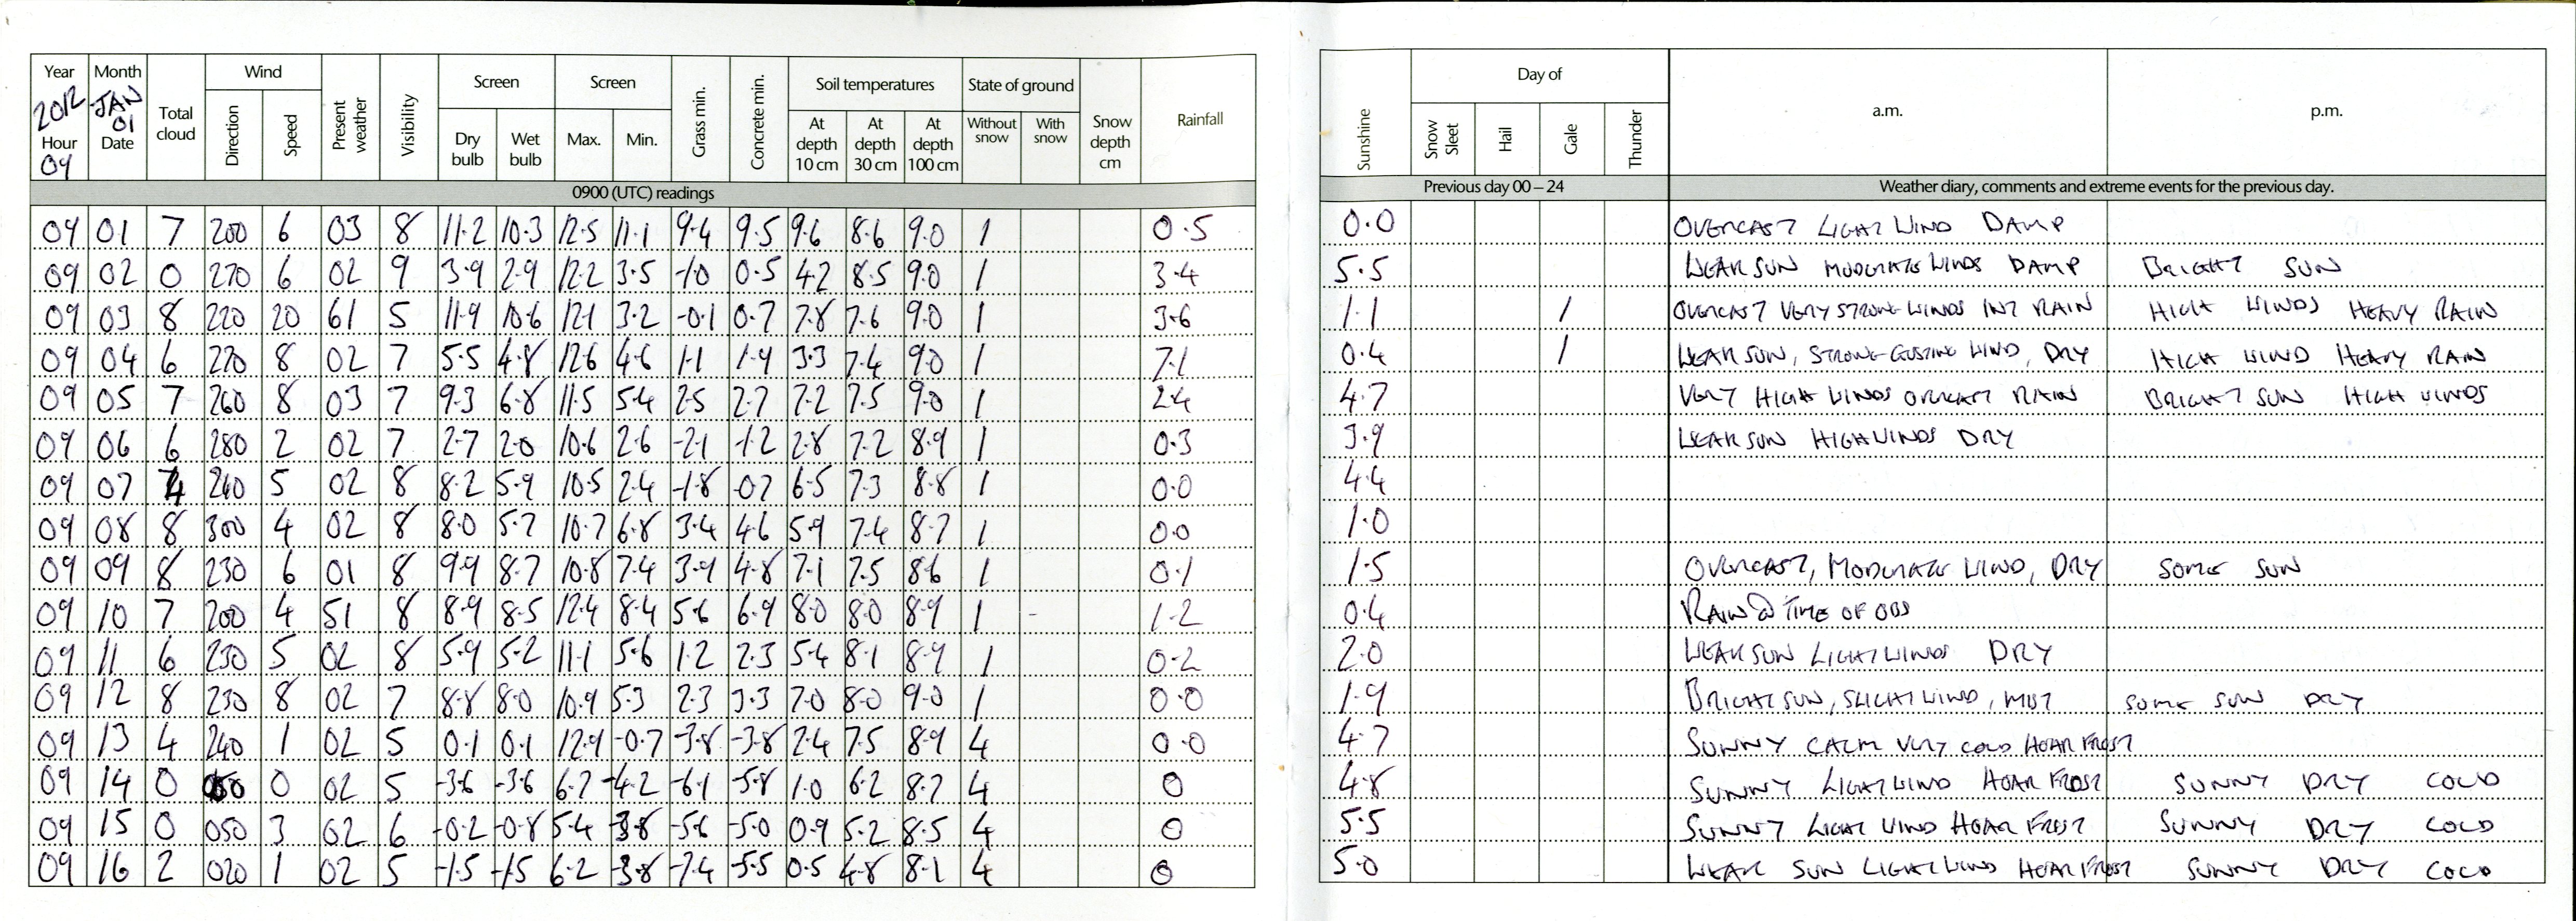 Year Month Total cloud Wind Present weather Visibility Screen Screen Grass min. Concrete min. Soil temperatures State of ground Snow depth cm Rainfall Sunshine Day of a.m. p.m.
2012 JAN 01 Direction Speed Dry bulb Wet bulb Max. Min. At depth 10 cm At depth 30 cm At depth 100 cm Without snow With snow Snow Sleet Hail Gale Thunder
Hour Date
09
0900 (UTC) readings Previous day 00 – 24 Weather diary, comments and extreme events for the previous day.
09 01 7 200 6 03 8 11.2 10.3 12.5 11.1 9.4 9.5 9.6 8.6 9.0 1 0.5 0.0 OVERCAST LIGHT WIND DAMP
09 02 0 270 6 02 9 3.9 2.9 12.2 3.5 -1.0 0.5 4.2 8.5 9.0 1 3.4 5.5 WEAK SUN MODERATE WINDS DAMP BRIGHT SUN
09 03 8 220 20 61 5 11.9 10.6 12.1 3.2 -0.1 0.7 7.8 7.6 9.0 1 3.6 1.1 / OVERCAST VERY STRONG WINDS INT RAIN HIGH WINDS HEAVY RAIN
09 04 6 270 8 02 7 5.5 4.8 12.6 4.6 1.1 1.9 3.3 7.4 9.0 1 7.1 0.4 / WEAK SUN, STRONG GUSTING WIND, DRY HIGH WIND HEAVY RAIN
09 05 7 260 8 03 7 9.3 6.8 11.5 5.4 2.5 2.7 7.2 7.5 9.0 1 2.4 4.7 VERY HIGH WINDS OVERCAST RAIN BRIGHT SUN HIGH WINDS
09 06 6 280 2 02 7 2.7 2.0 10.6 2.6 -2.1 -1.2 2.8 7.2 8.9 1 0.3 3.9 WEAK SUN HIGH WINDS DRY
09 07 5 02 8 8.2 5.9 10.5 2.4 -1.8 -0.7 6.5 7.3 8.8 1 0.0 4.4
09 08 8 300 4 02 8 8.0 5.7 10.7 6.8 3.4 4.6 5.9 7.4 8.7 1 0.0 1.0
09 09 8 230 6 01 8 9.9 8.7 10.8 7.4 3.9 4.8 7.1 7.5 8.6 1 0.1 1.5 OVERCAST, MODERATE WIND, DRY SOME SUN
09 10 7 200 4 51 8 8.9 8.5 12.4 8.4 5.6 6.9 8.0 8.0 8.9 1 - 1.2 0.4 RAIN @ TIME OF OBS
09 11 6 230 5 02 8 5.9 5.2 11.1 5.6 1.2 2.3 5.4 8.1 8.9 1 0.2 2.0 WEAK SUN LIGHT WINDS DRY
09 12 8 230 8 02 7 8.8 8.0 10.9 5.3 2.3 3.3 7.0 8.0 9.0 1 0.0 1.9 BRIGHT SUN, SLIGHT WIND, MIST SOME SUN DRY
09 13 4 240 1 02 5 0.1 0.1 12.9 -0.7 -3.8 -3.8 2.4 7.5 8.9 4 0.0 4.7 SUNNY CALM VERY COLD HOAR FROST
09 14 0 0 02 5 -3.6 -3.6 6.7 -4.2 -6.1 -5.8 1.0 6.2 8.7 4 0 4.8 SUNNY LIGHT WIND HOAR FROST SUNNY DRY COLD
09 15 0 050 3 02 6 -0.2 -0.8 5.4 -3.8 -5.6 -5.0 0.9 5.2 8.5 4 0 5.5 SUNNY LIGHT WIND HOAR FROST SUNNY DRY COLD
09 16 2 020 1 02 5 -1.5 -1.5 6.2 -3.8 -7.4 -5.5 0.5 4.8 8.1 4 0 5.0 WEAK SUN LIGHT WIND HOAR FROST SUNNY DRY COLD